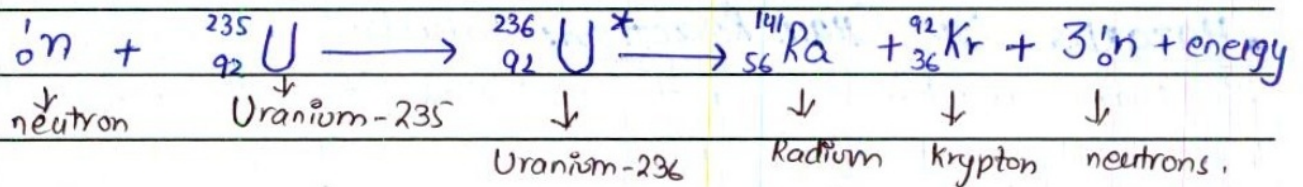 ¹₀n + ²³⁵₉₂U ⟶ ²³⁶₉₂U* ⟶ ¹⁴¹₅₆Ra + ⁹²₃₆Kr + 3¹₀n + energy
↓ ↓ ↓ ↓ ↓ ↓
neutron Uranium-235
Uranium-236 Radium Krypton neutrons.